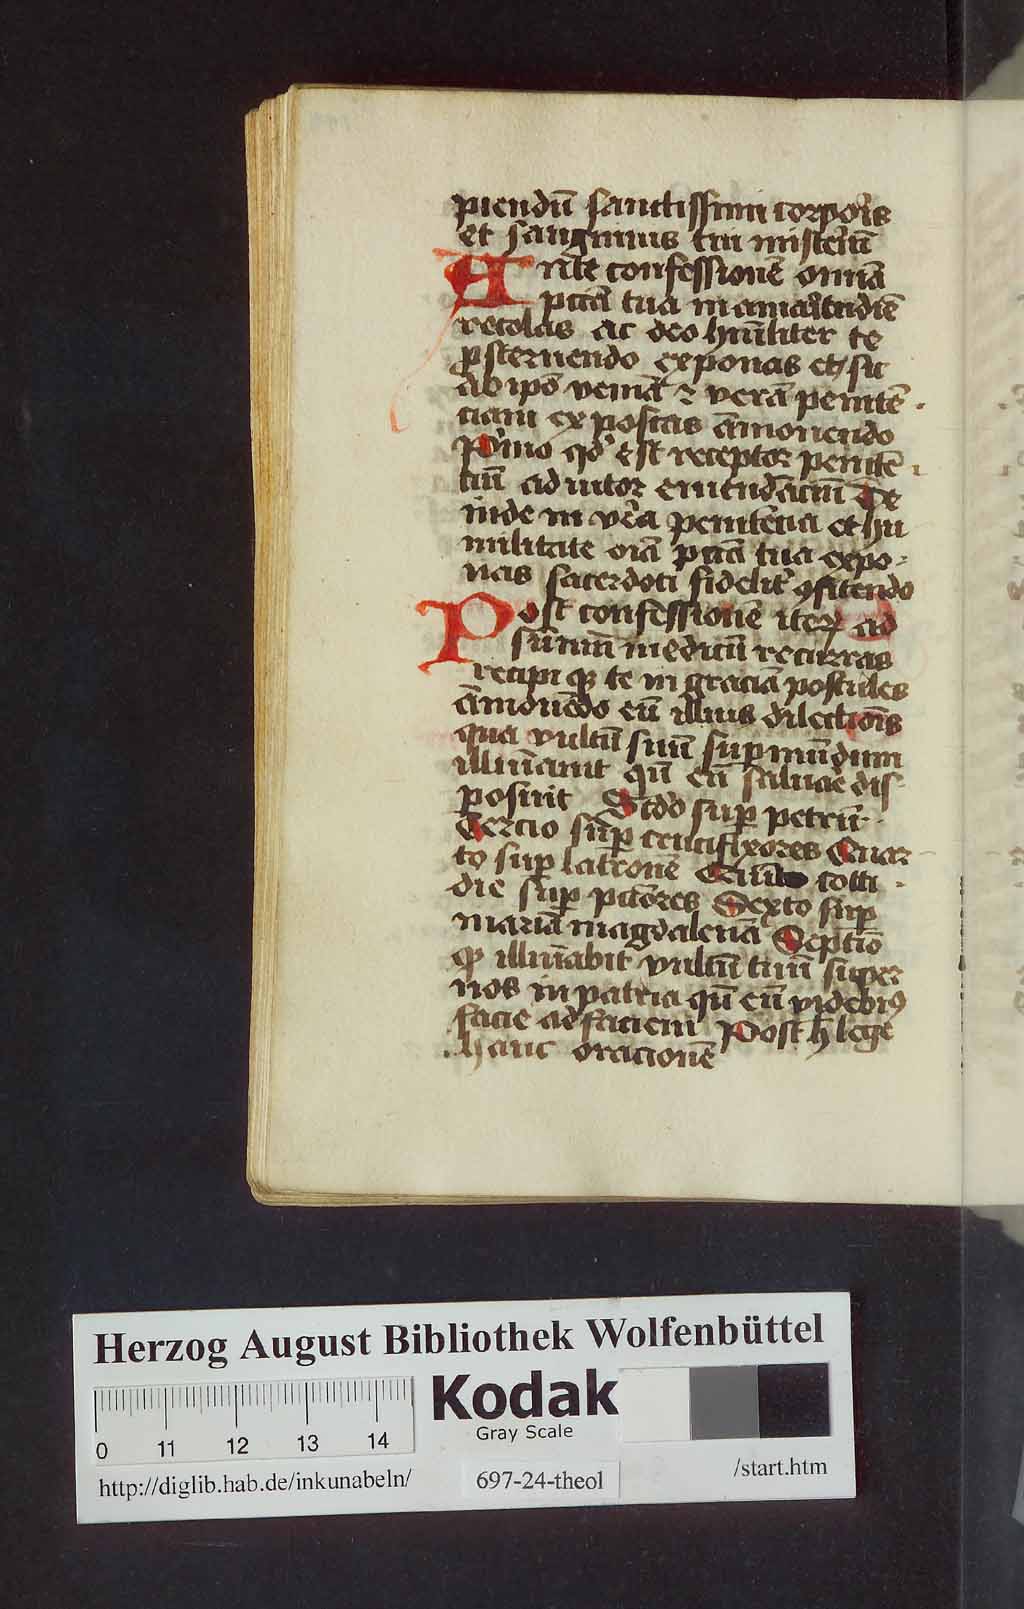 piendū sanctissimi corporis
et sanguinis tui misteriū
Ante confessionē omīa
pctā tua in amaritudīe
recolas ac deo humīliter te
prosternendo exponas et sic
ab ipō veniā ⁊ verā penitē-
ciam ex poscas āmonendo
primo qd' est receptor penitē-
tiū adiutor emendaciū De
inde in vera penitēcia et hu
militate oīa pctā tua expo-
nas sacerdoti fidelit' ꝯfitendo
Post confessionē iteꝝ ad
sūmū medicū recurras
recipi qꝫ te in graciā postules
āmonēdo eū illius dilectiōis
qua vultū suū sup mūdum
illuīauit qn̄ eū saluare dis-
posuit Scdo sup petrū
Tercio sup crucifixores Quar
to sup latronē Quīto cotti-
die sup pctōres Sexto sup
mariā magdalenā Septīo
qꝫ illuīabit vultū tuū super
nos in patria qn̄ eū videbimꝰ
facie ad faciem Post h̄ lege
hanc oracionē
Herzog August Bibliothek Wolfenbüttel
Kodak
Gray Scale
0 11 12 13 14
http://diglib.hab.de/inkunabeln/ 697-24-theol /start.htm